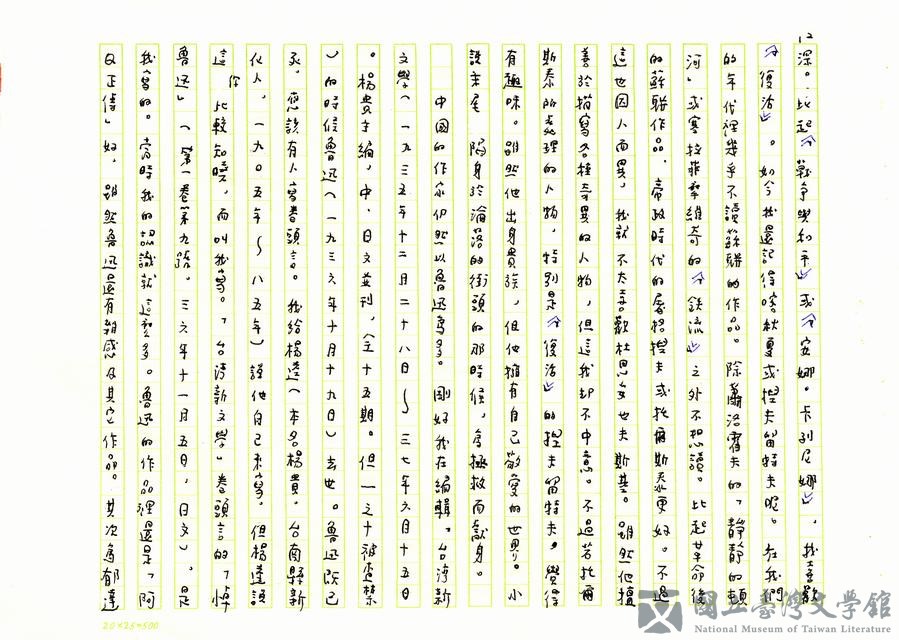 深。比起《戰爭與和平》或《安娜。卡列尼娜》,我喜歡
《復活》。如今我還記得喀秋夏或捏夫留特夫呢。在我們
的年代裡幾乎不讀蘇聯的作品。除蕭洛霍夫的「靜靜的頓
河」或塞拉菲摩維奇的《鉄流》之外不想讀。比起革命後
的蘇聯作品,帝政時代的屠格捏夫或托爾斯泰更好。不過
這也因人而異,我就不太喜歡杜思妥也夫斯基。雖然他擅
善於描寫各種奇異的人物,但這我却不中意。不過若托爾
斯泰所處理的人物,特別是《復活》的捏夫留特夫,覺得
有趣味。雖然他出身貴族,但他擁有自己敬愛的世界。小
說末尾 陷身於淪落的街頭的那時候,為拯救而獻身。
中國的作家仍然以魯迅為多。剛好我在編輯「台湾新
文學」(一九三五年十二月二十八日~三七年六月十五日
。楊貴主編,中、日文並刊,全十五期。但一之十被查禁
)的時候魯迅(一九三六年十月十九日)去世。魯迅既已
死,應該有人寫卷頭言。我給楊逵(本名楊貴,台南縣新
化人,一九〇五年~八五年)說他自己來寫。但楊逵說
這 你比較知曉,而叫我寫。「台湾新文學」卷頭言的「悼
魯迅」(第一卷第九號。三六年十一月五日,日文)是
我寫的。當時我的認識就這麼多。魯迅的作品裡還是「阿
Q正傳」好,雖然魯迅還有雜感及其它作品。其次為郁達
20×25=500
國立臺灣文學館
National Museum of Taiwan Literature